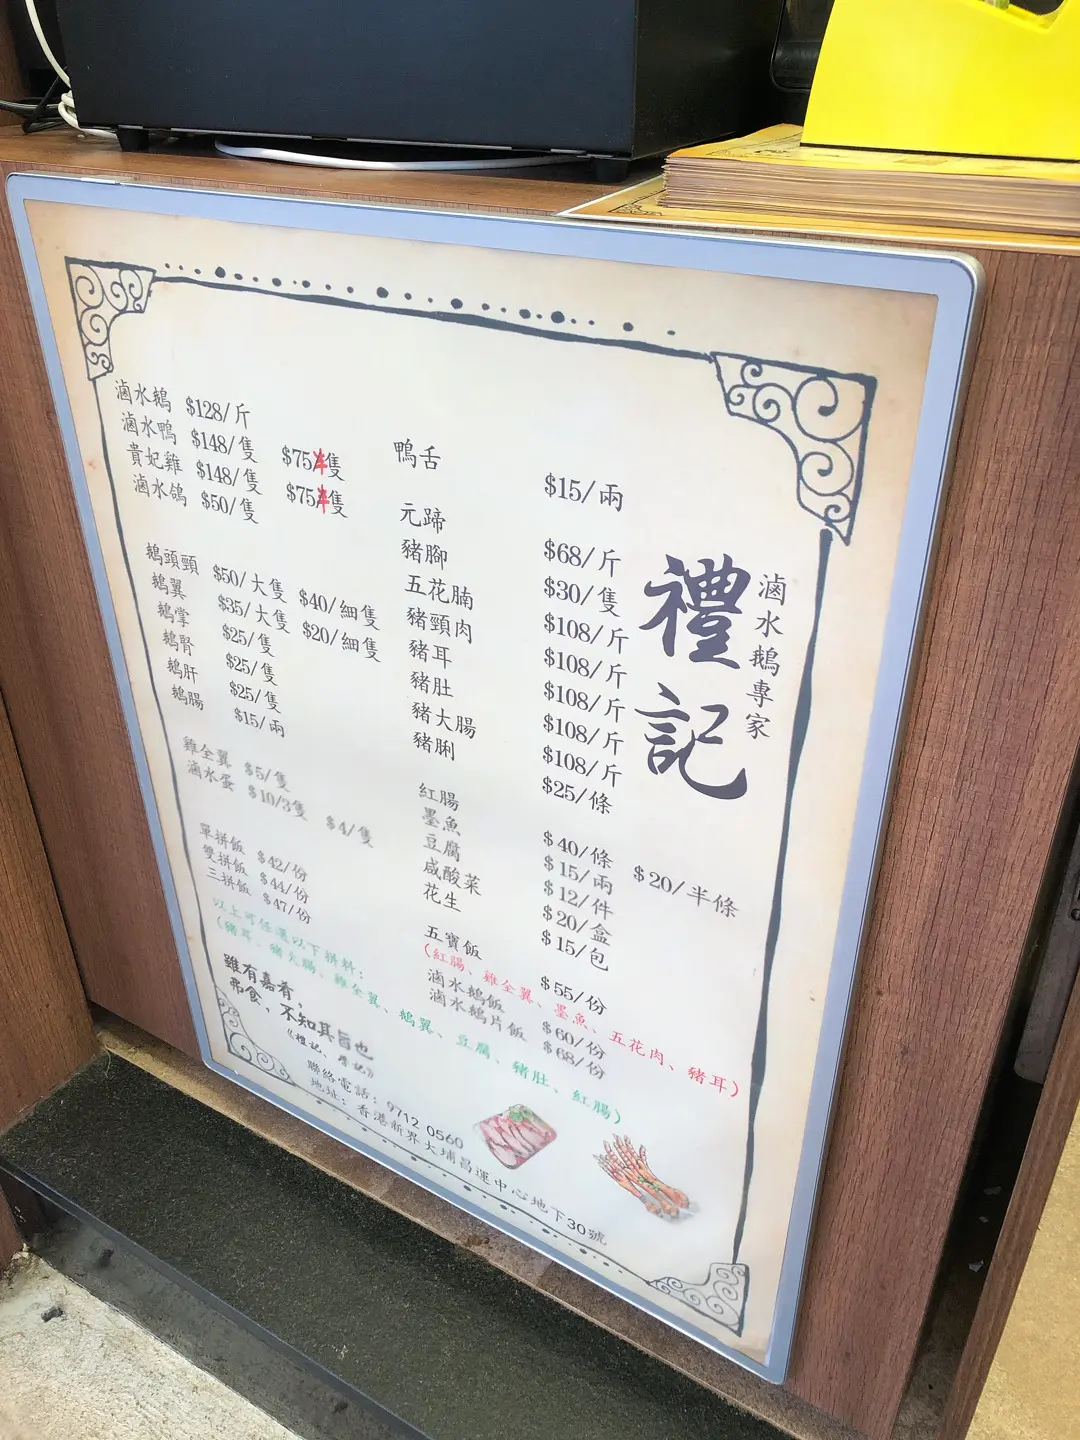 滷水鵝 $128/斤
滷水鴨 $148/隻 $75/隻
貴妃雞 $148/隻 $75/隻
滷水鴿 $50/隻
鵝頭頸 $50/大隻 $40/細隻
鵝翼 $35/大隻 $20/細隻
鵝掌 $25/隻
鵝腎 $25/隻
鵝肝 $25/隻
鵝腸 $15/兩
雞全翼 $5/隻
滷水蛋 $10/3隻 $4/隻
單拼飯 $42/份
雙拼飯 $44/份
三拼飯 $47/份
以上可任選以下拼料：
(豬耳、豬大腸、雞全翼、鵝翼、豆腐、豬肚、紅腸)
雖有嘉肴，
弗食，不知其旨也
《禮記、學記》
鴨舌 $15/兩
元蹄 $68/斤
豬腳 $30/隻
五花腩 $108/斤
豬頸肉 $108/斤
豬耳 $108/斤
豬肚 $108/斤
豬大腸 $108/斤
豬脷 $25/條
紅腸 $40/條 $20/半條
墨魚 $15/兩
豆腐 $12/件
咸酸菜 $20/盒
花生 $15/包
五寶飯 $55/份
(紅腸、雞全翼、墨魚、五花肉、豬耳)
滷水鵝飯 $60/份
滷水鵝片飯 $68/份
滷水鵝專家
禮記
聯絡電話：9712 0560
地址：香港新界大埔昌運中心地下30號